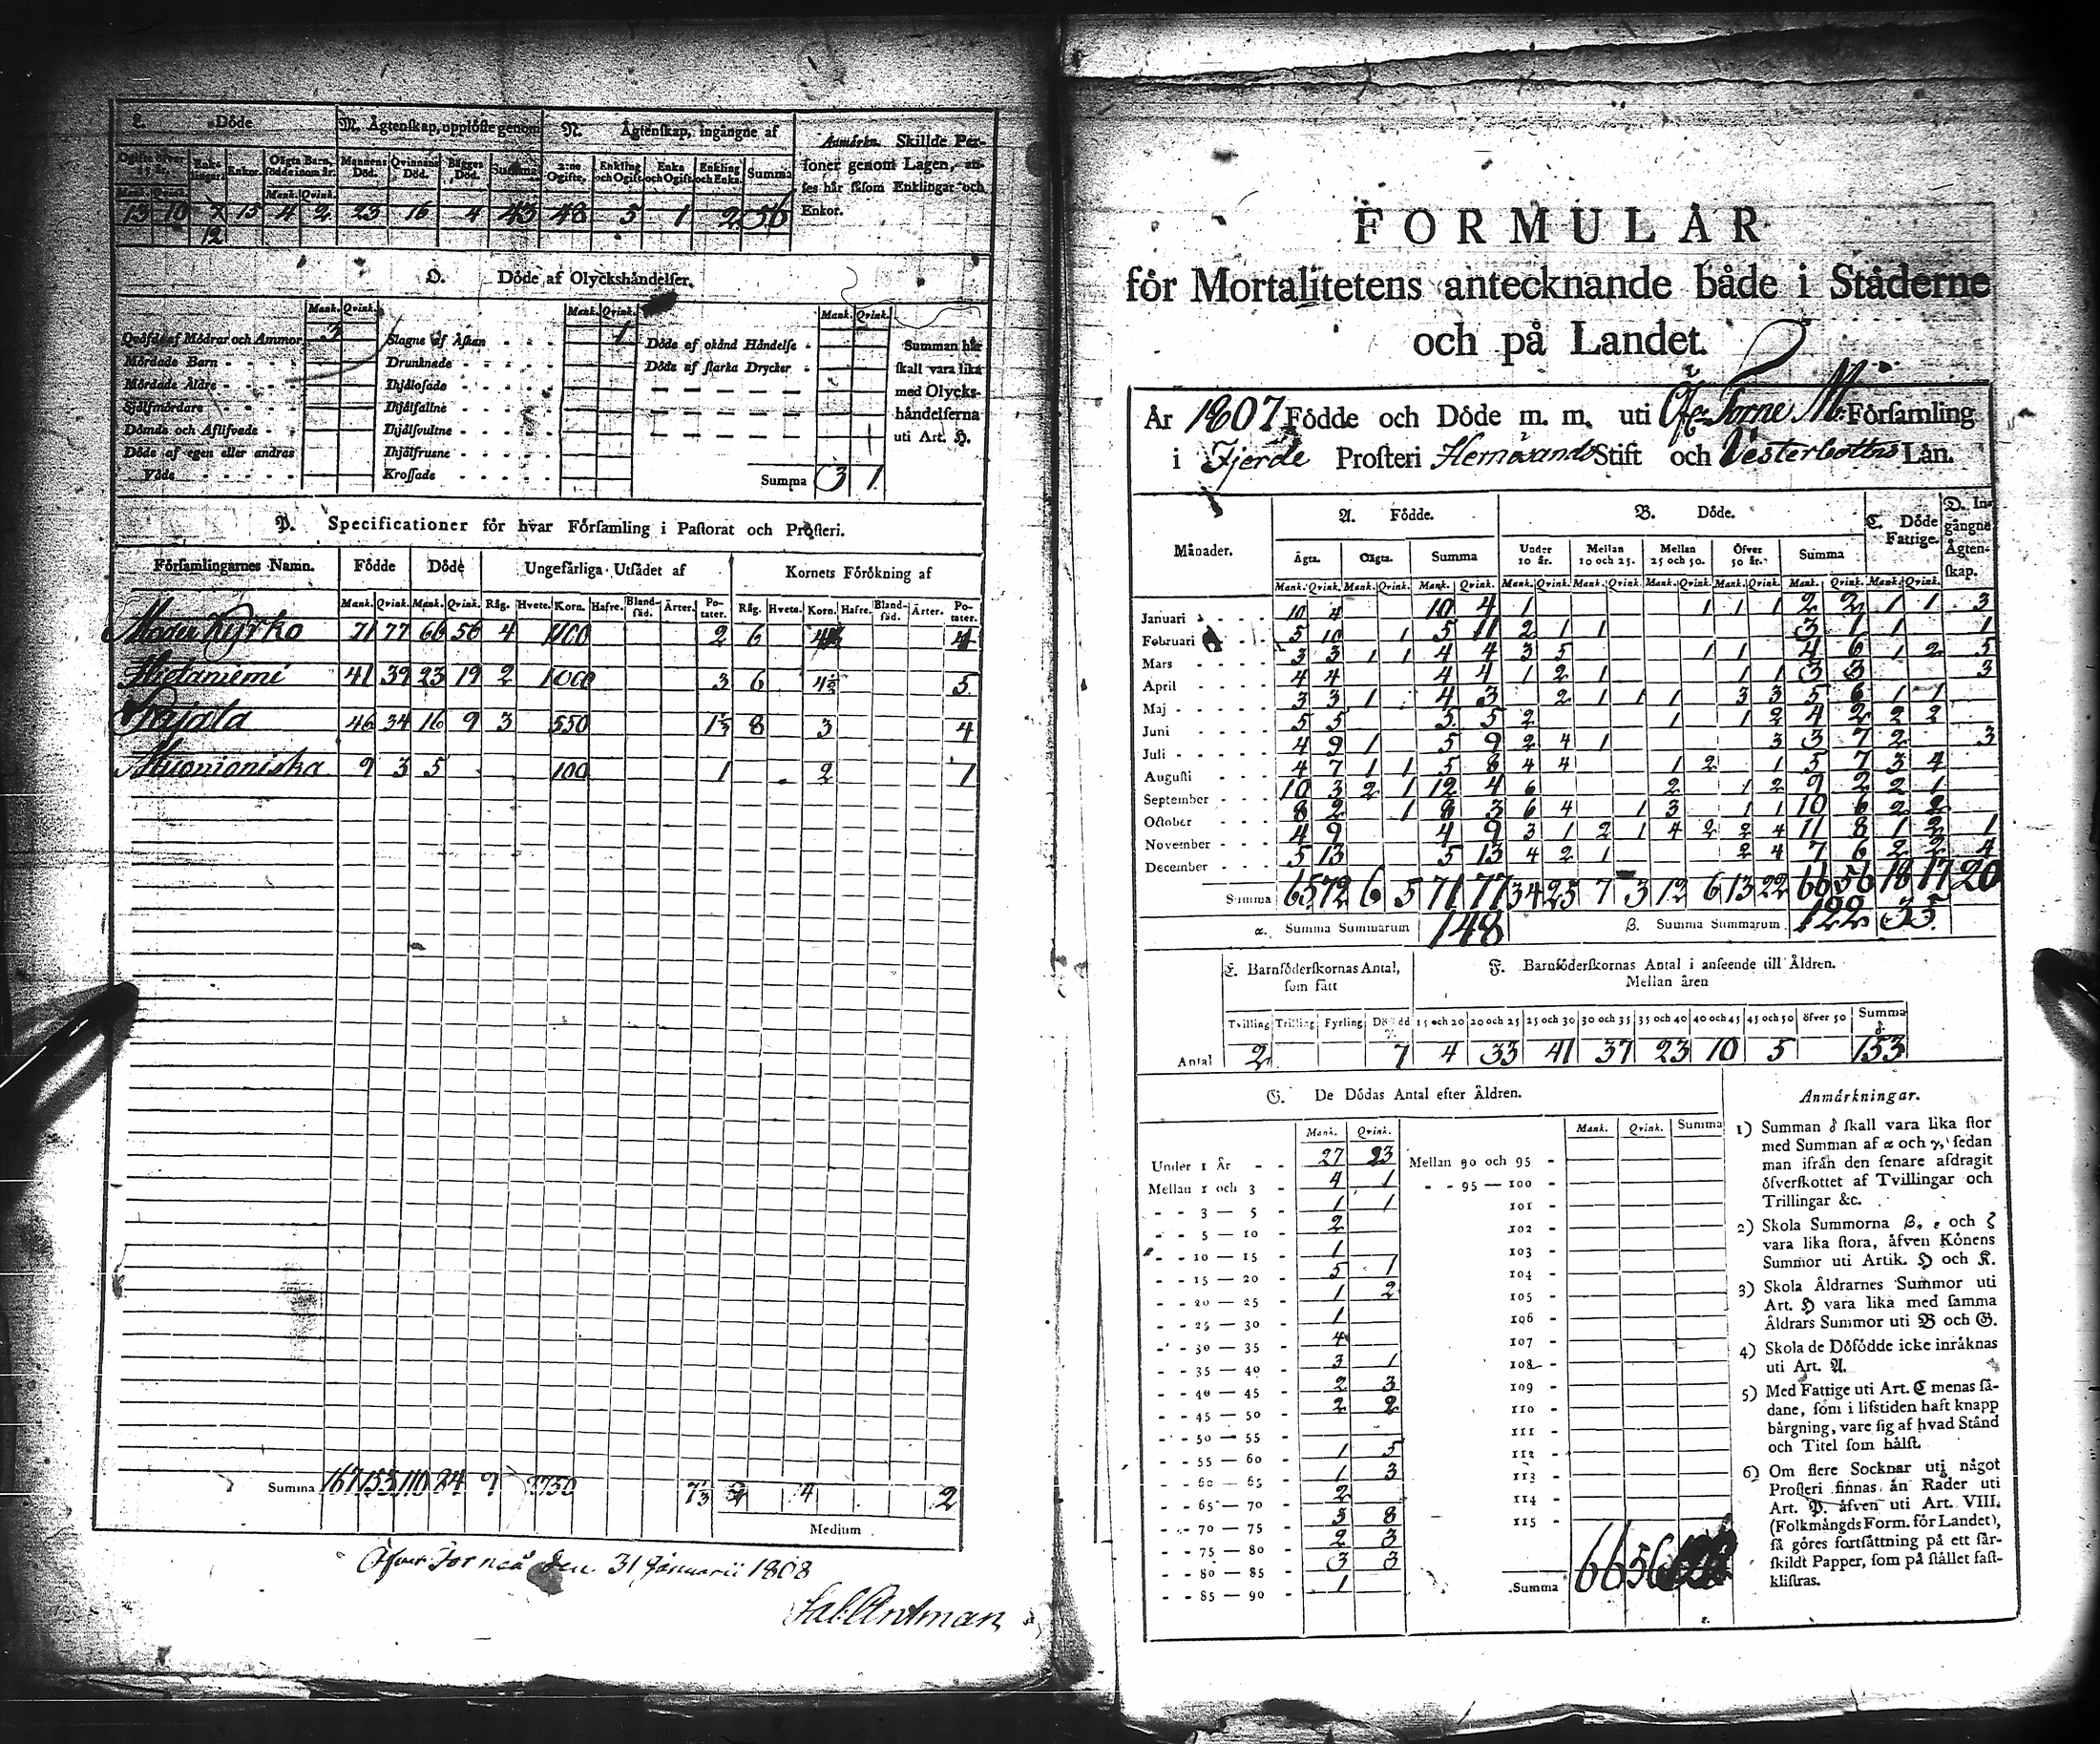 L. Döde
M. Ägtenskap, upplöste genom
N. Ägtenskap, ingångne af
Anmärkn. Skillde Personer
soner genom Lagen, an-
ses här såsom Enklingar och
Enkor.
Ogifte öfver 15 år. Enklingar Enkor. Oägta Barn, födde inom år. Mannens Död. Qvinnans Död. Bägges Död. Summa 2:ne Ogifte. Enkling och Ogift Enka och Ogift Enkling och Enka. Summa
Mank. Qvink. Mank. Qvink.
13 10 7 15 4 2 23 16 4 43 48 5 1 2 56
12
O. Döde af Olyckshändelser.
Mank. Qvink. Mank. Qvink. Mank. Qvink.
Qväfde af Mödrar och Ammor 3 Slagne af Åskan 1 Döde af okänd Händelse Summan här
Mördade Barn Drunknade Döde af starka Drycker skall vara lika
Mördade Äldre Ihjälosade med Olycks-
Sjelfmördare Ihjälfallne händelserna
Dömde och Aflifvade Ihjälsvultne uti Art. H.
Döde af egen eller andras Ihjälfrusne
Våde Krossade Summa 3 1
P. Specificationer för hvar Församling i Pastorat och Prosteri.
Församlingarnes Namn. Födde Döde Ungefärliga Utsädet af Kornets Förökning af
Mank. Qvink. Mank. Qvink. Råg. Hvete. Korn. Hafre. Bland-säd. Ärter. Po-tater. Råg. Hvete. Korn. Hafre. Bland-säd. Ärter. Po-tater.
Moder Kyrko 71 77 66 56 4 2 6 4
Hietaniemi 41 39 23 19 2 1000 3 6 4½ 5
Pajala 46 34 16 9 3 550 1⅓ 8 3 4
Muonioniska 9 3 5 100 1 2 1
Summa 167 153 110 84 9 2750 7⅓ 4 2
Medium
Öfver Torneå den 31 Januarii 1808
FORMULÄR
för Mortalitetens antecknande både i Städerne
och på Landet.
År 1807 Födde och Döde m. m. uti Öfv. Torne M. Församling
i Fjerde Prosteri Hernösands Stift och Vesterbottns Län.
Månader. A. Födde. B. Döde. C. Döde Fattige. D. Ingångne Ägtenskap.
Ägta. Oägta. Summa Under 10 år. Mellan 10 och 25. Mellan 25 och 50. Öfver 50 år. Summa
Mank. Qvink. Mank. Qvink. Mank. Qvink. Mank. Qvink. Mank. Qvink. Mank. Qvink. Mank. Qvink. Mank. Qvink. Mank. Qvink.
Januari 10 4 10 4 1 1 1 1 2 2 1 1 3
Februari 5 10 1 5 11 2 1 1 3 1 1 1
Mars 3 3 1 1 4 4 3 5 1 1 4 6 1 2 5
April 4 4 4 4 1 2 1 1 1 3 3 3
Maj 3 3 1 4 3 2 1 1 1 3 3 5 6 1 1
Juni 5 5 5 5 2 1 1 2 4 2 2 2
Juli 4 9 1 5 9 2 4 1 3 3 7 2 3
Augusti 4 7 1 1 5 8 4 4 1 2 1 5 7 3 4
September 10 3 2 1 12 4 6 2 1 2 9 2 2 1
October 8 2 1 8 3 6 4 1 3 1 1 10 6 2 2
November 4 9 4 9 3 1 2 1 4 2 2 4 11 8 1 2 1
December 5 13 5 13 4 2 1 2 4 7 6 2 2 4
Summa 65 72 6 5 71 77 34 25 7 3 12 6 13 22 66 56 18 17 20
α. Summa Summarum 148 β. Summa Summarum 122 35
E. Barnföderskornas Antal, som fått
F. Barnföderskornas Antal i anseende till Åldren.
Mellan åren
Tvilling Trilling Fyrling Dödfödd 15 och 20 20 och 25 25 och 30 30 och 35 35 och 40 40 och 45 45 och 50 öfver 50 Summa
Antal 2 7 4 33 41 37 23 10 5 153
G. De Dödas Antal efter Åldren.
Mank. Qvink. Mank. Qvink. Summa
Under 1 År 27 23 Mellan 90 och 95
Mellan 1 och 3 4 1 95 — 100
3 — 5 1 1 101
5 — 10 2 102
10 — 15 1 103
15 — 20 5 1 104
20 — 25 1 2 105
25 — 30 1 106
30 — 35 4 107
35 — 40 3 1 108
40 — 45 2 3 109
45 — 50 2 2 110
50 — 55 111
55 — 60 1 5 112
60 — 65 1 3 113
65 — 70 2 114
70 — 75 3 8 115
75 — 80 2 3
80 — 85 3 3
85 — 90 1
Summa 66 56
Anmärkningar.
1) Summan δ skall vara lika stor
med Summan af α och γ, sedan
man ifrån den senare afdragit
öfverskottet af Tvillingar och
Trillingar &c.
2) Skola Summorna β, ε och ζ
vara lika stora, äfven Könens
Summor uti Artik. H och K.
3) Skola Åldrarnes Summor uti
Art. H vara lika med samma
Åldrars Summor uti B och G.
4) Skola de Dödfödde icke inräknas
uti Art. A.
5) Med Fattige uti Art. C menas så-
dane, som i lifstiden haft knapp
bärgning, vare sig af hvad Stånd
och Titel som hälst.
6) Om flere Socknar uti något
Prosteri finnas än Rader uti
Art. P. äfven uti Art. VIII.
(Folkmängds Form. för Landet),
så göres fortsättning på ett sär-
skildt Papper, som på stället fast-
klistras.